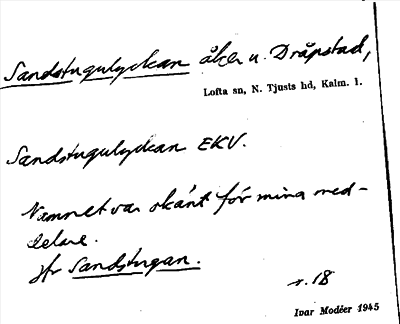 Sandstugulyckan åker u. Dråpstad,
Lofta sn, N. Tjusts hd, Kalm. l.
Sandstugulyckan EKV.
Namnet var okänt för mina med-
delare.
Jfr Sandstugan.
s. 18
Ivar Modéer 1945